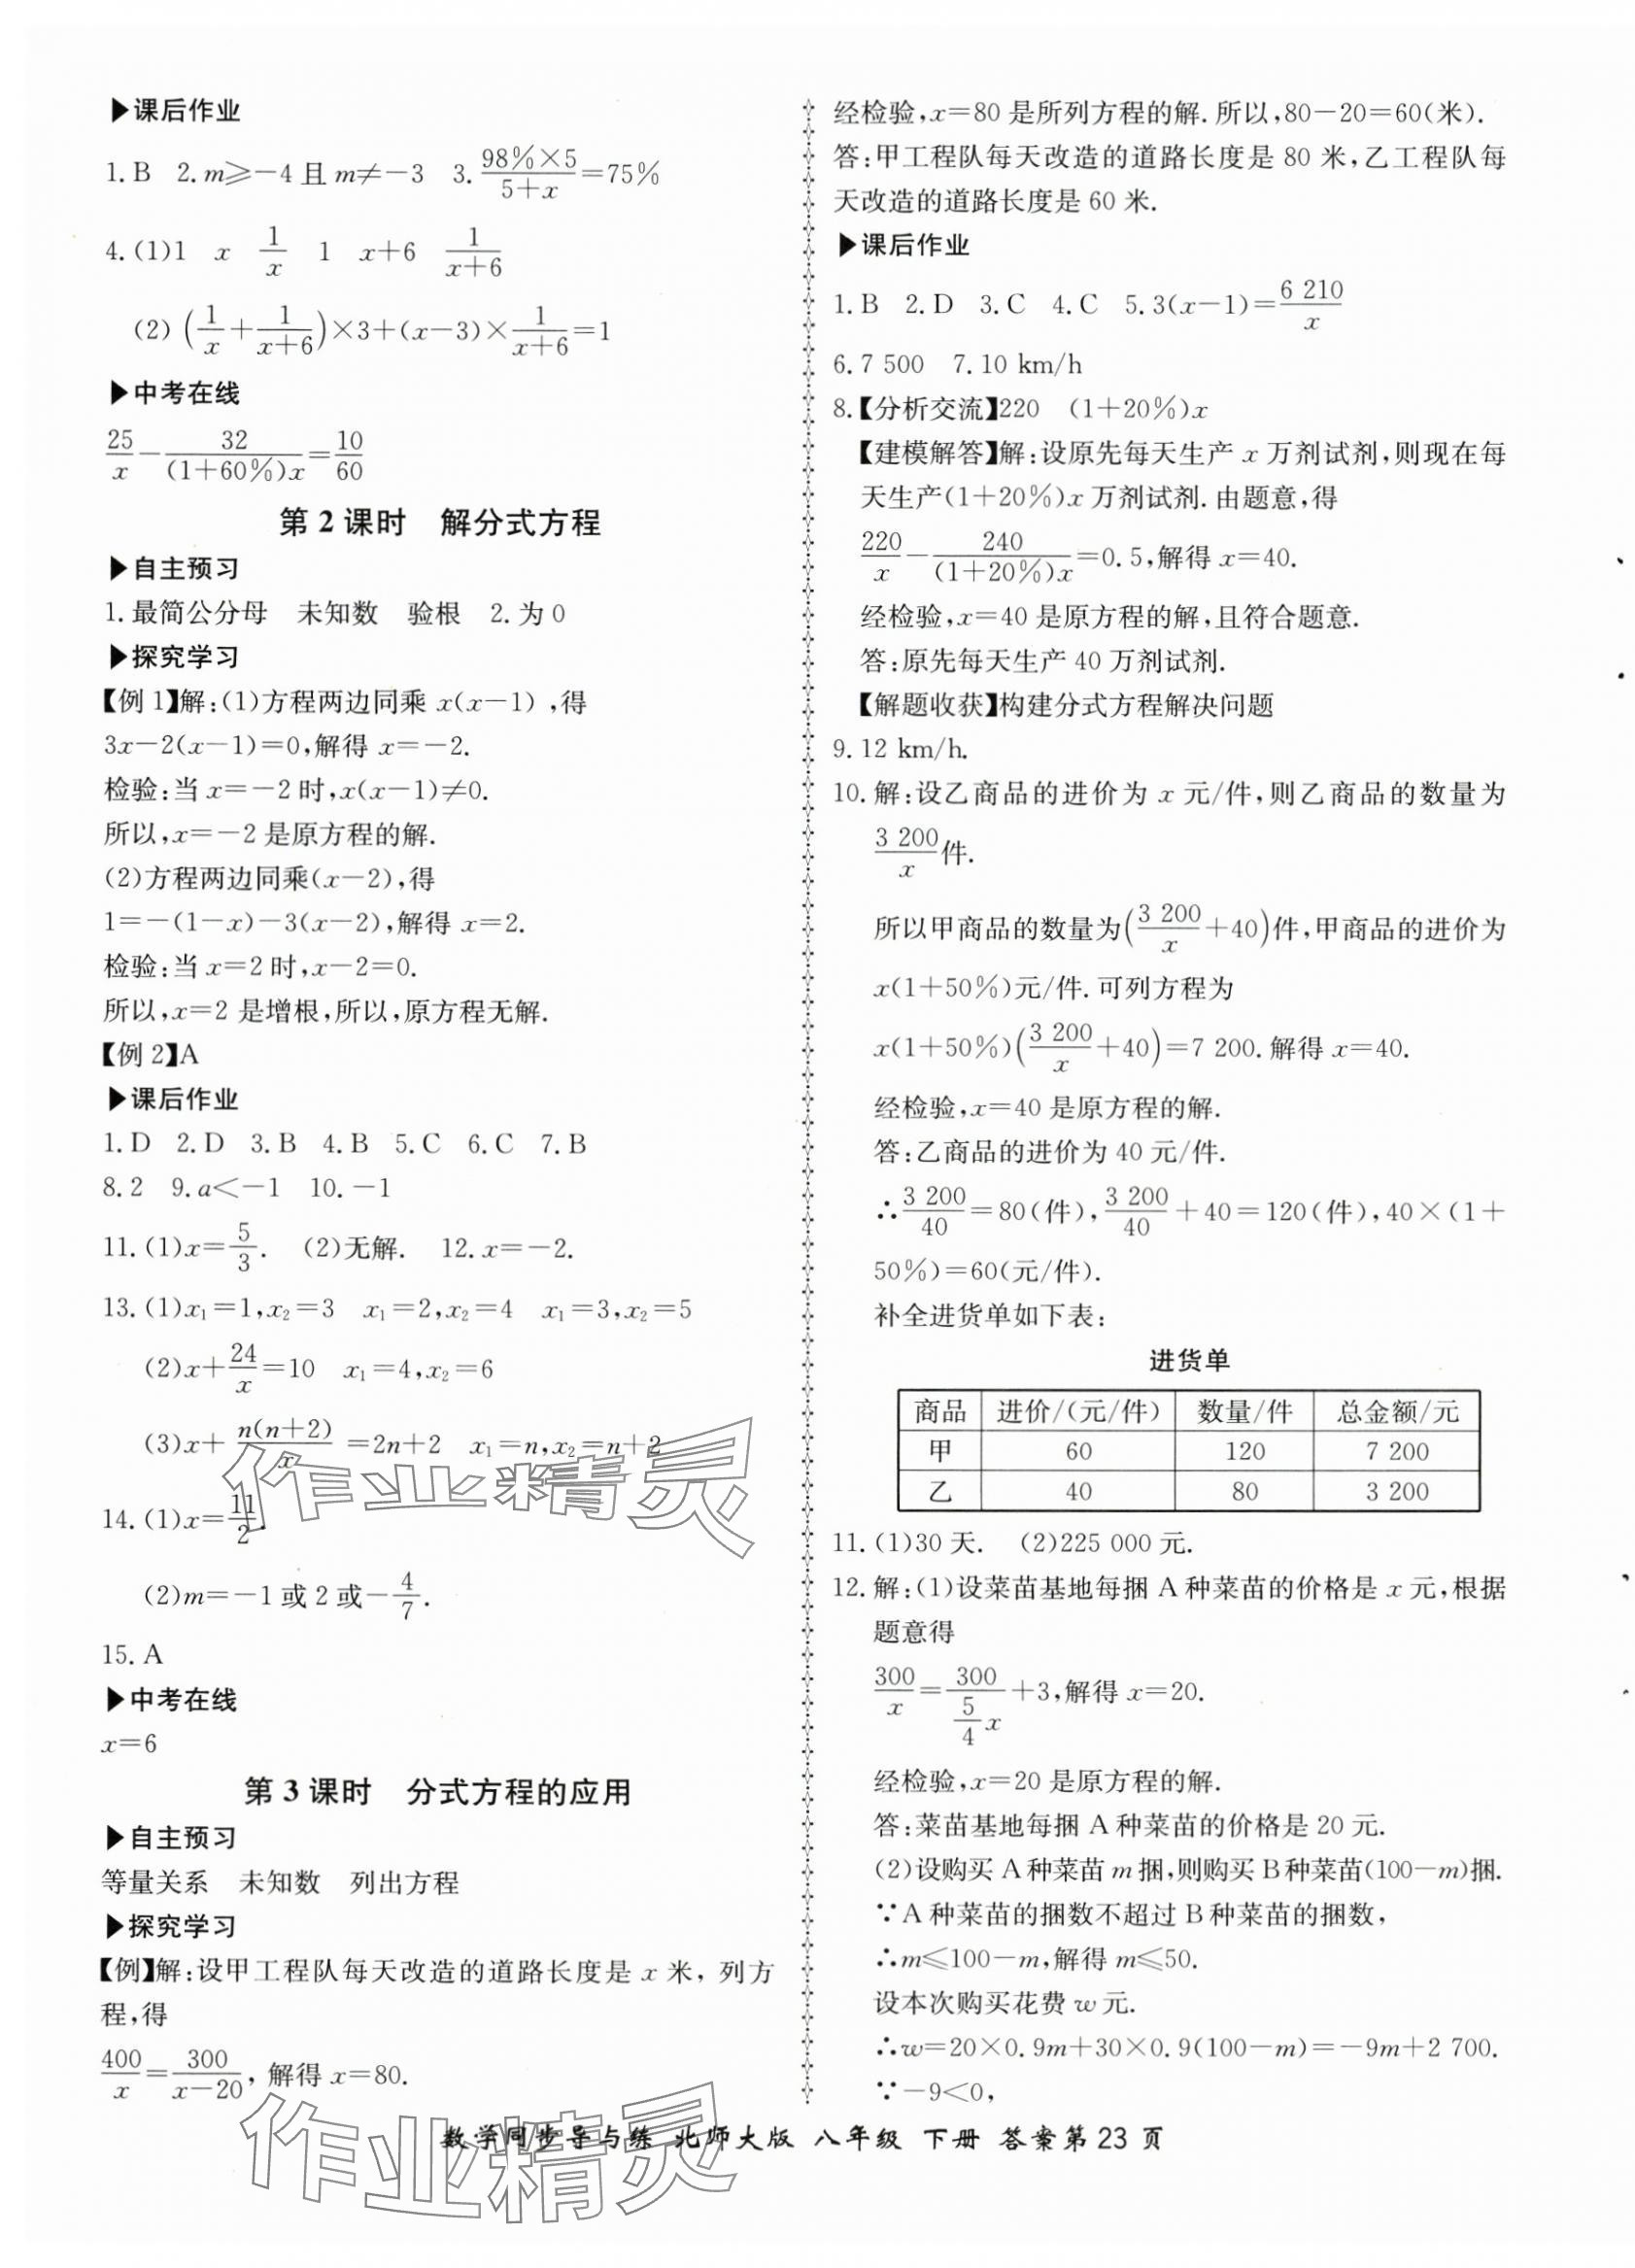 ▶课后作业
1.B 2.m≥-4且m≠-3 3.\frac{98%×5}{5+x}=75%
4.(1)1 x \frac{1}{x} 1 x+6 \frac{1}{x+6}
(2)(\frac{1}{x}+\frac{1}{x+6})×3+(x-3)×\frac{1}{x+6}=1
▶中考在线
\frac{25}{x}-\frac{32}{(1+60%)x}=\frac{10}{60}
第2课时 解分式方程
▶自主预习
1.最简公分母 未知数 验根 2.为0
▶探究学习
【例1】解:(1)方程两边同乘x(x-1),得
3x-2(x-1)=0,解得x=-2.
检验:当x=-2时,x(x-1)≠0.
所以,x=-2是原方程的解.
(2)方程两边同乘(x-2),得
1=-(1-x)-3(x-2),解得x=2.
检验:当x=2时,x-2=0.
所以,x=2是增根,所以,原方程无解.
【例2】A
▶课后作业
1.D 2.D 3.B 4.B 5.C 6.C 7.B
8.2 9.a<-1 10.-1
11.(1)x=\frac{5}{3}. (2)无解. 12.x=-2.
13.(1)x₁=1,x₂=3 x₁=2,x₂=4 x₁=3,x₂=5
(2)x+\frac{24}{x}=10 x₁=4,x₂=6
(3)x+\frac{n(n+2)}{x}=2n+2 x₁=n,x₂=n+2
14.(1)x=\frac{11}{2}.
(2)m=-1或2或-\frac{4}{7}.
15.A
▶中考在线
x=6
第3课时 分式方程的应用
▶自主预习
等量关系 未知数 列出方程
▶探究学习
【例】解:设甲工程队每天改造的道路长度是x米,列方
程,得
\frac{400}{x}=\frac{300}{x-20},解得x=80.
经检验,x=80是所列方程的解.所以,80-20=60(米).
答:甲工程队每天改造的道路长度是80米,乙工程队每
天改造的道路长度是60米.
▶课后作业
1.B 2.D 3.C 4.C 5.3(x-1)=\frac{6 210}{x}
6.7 500 7.10 km/h
8.【分析交流】220 (1+20%)x
【建模解答】解:设原先每天生产x万剂试剂,则现在每
天生产(1+20%)x万剂试剂.由题意,得
\frac{220}{x}-\frac{240}{(1+20%)x}=0.5,解得x=40.
经检验,x=40是原方程的解,且符合题意.
答:原先每天生产40万剂试剂.
【解题收获】构建分式方程解决问题
9.12 km/h.
10.解:设乙商品的进价为x元/件,则乙商品的数量为
\frac{3 200}{x}件.
所以甲商品的数量为(\frac{3 200}{x}+40)件,甲商品的进价为
x(1+50%)元/件.可列方程为
x(1+50%)(\frac{3 200}{x}+40)=7 200.解得x=40.
经检验,x=40是原方程的解.
答:乙商品的进价为40元/件.
∴\frac{3 200}{40}=80(件),\frac{3 200}{40}+40=120(件),40×(1+
50%)=60(元/件).
补全进货单如下表:
进货单
商品 进价/(元/件) 数量/件 总金额/元
甲 60 120 7 200
乙 40 80 3 200
11.(1)30天. (2)225 000元.
12.解:(1)设菜苗基地每捆A种菜苗的价格是x元,根据
题意得
\frac{300}{x}=\frac{300}{\frac{5}{4}x}+3,解得x=20.
经检验,x=20是原方程的解.
答:菜苗基地每捆A种菜苗的价格是20元.
(2)设购买A种菜苗m捆,则购买B种菜苗(100-m)捆.
∵A种菜苗的捆数不超过B种菜苗的捆数,
∴m≤100-m,解得m≤50.
设本次购买花费w元.
∴w=20×0.9m+30×0.9(100-m)=-9m+2 700.
∵-9<0,
作业精灵
作业精灵
数学同步导与练 北师大版 八年级 下册 答案第23页